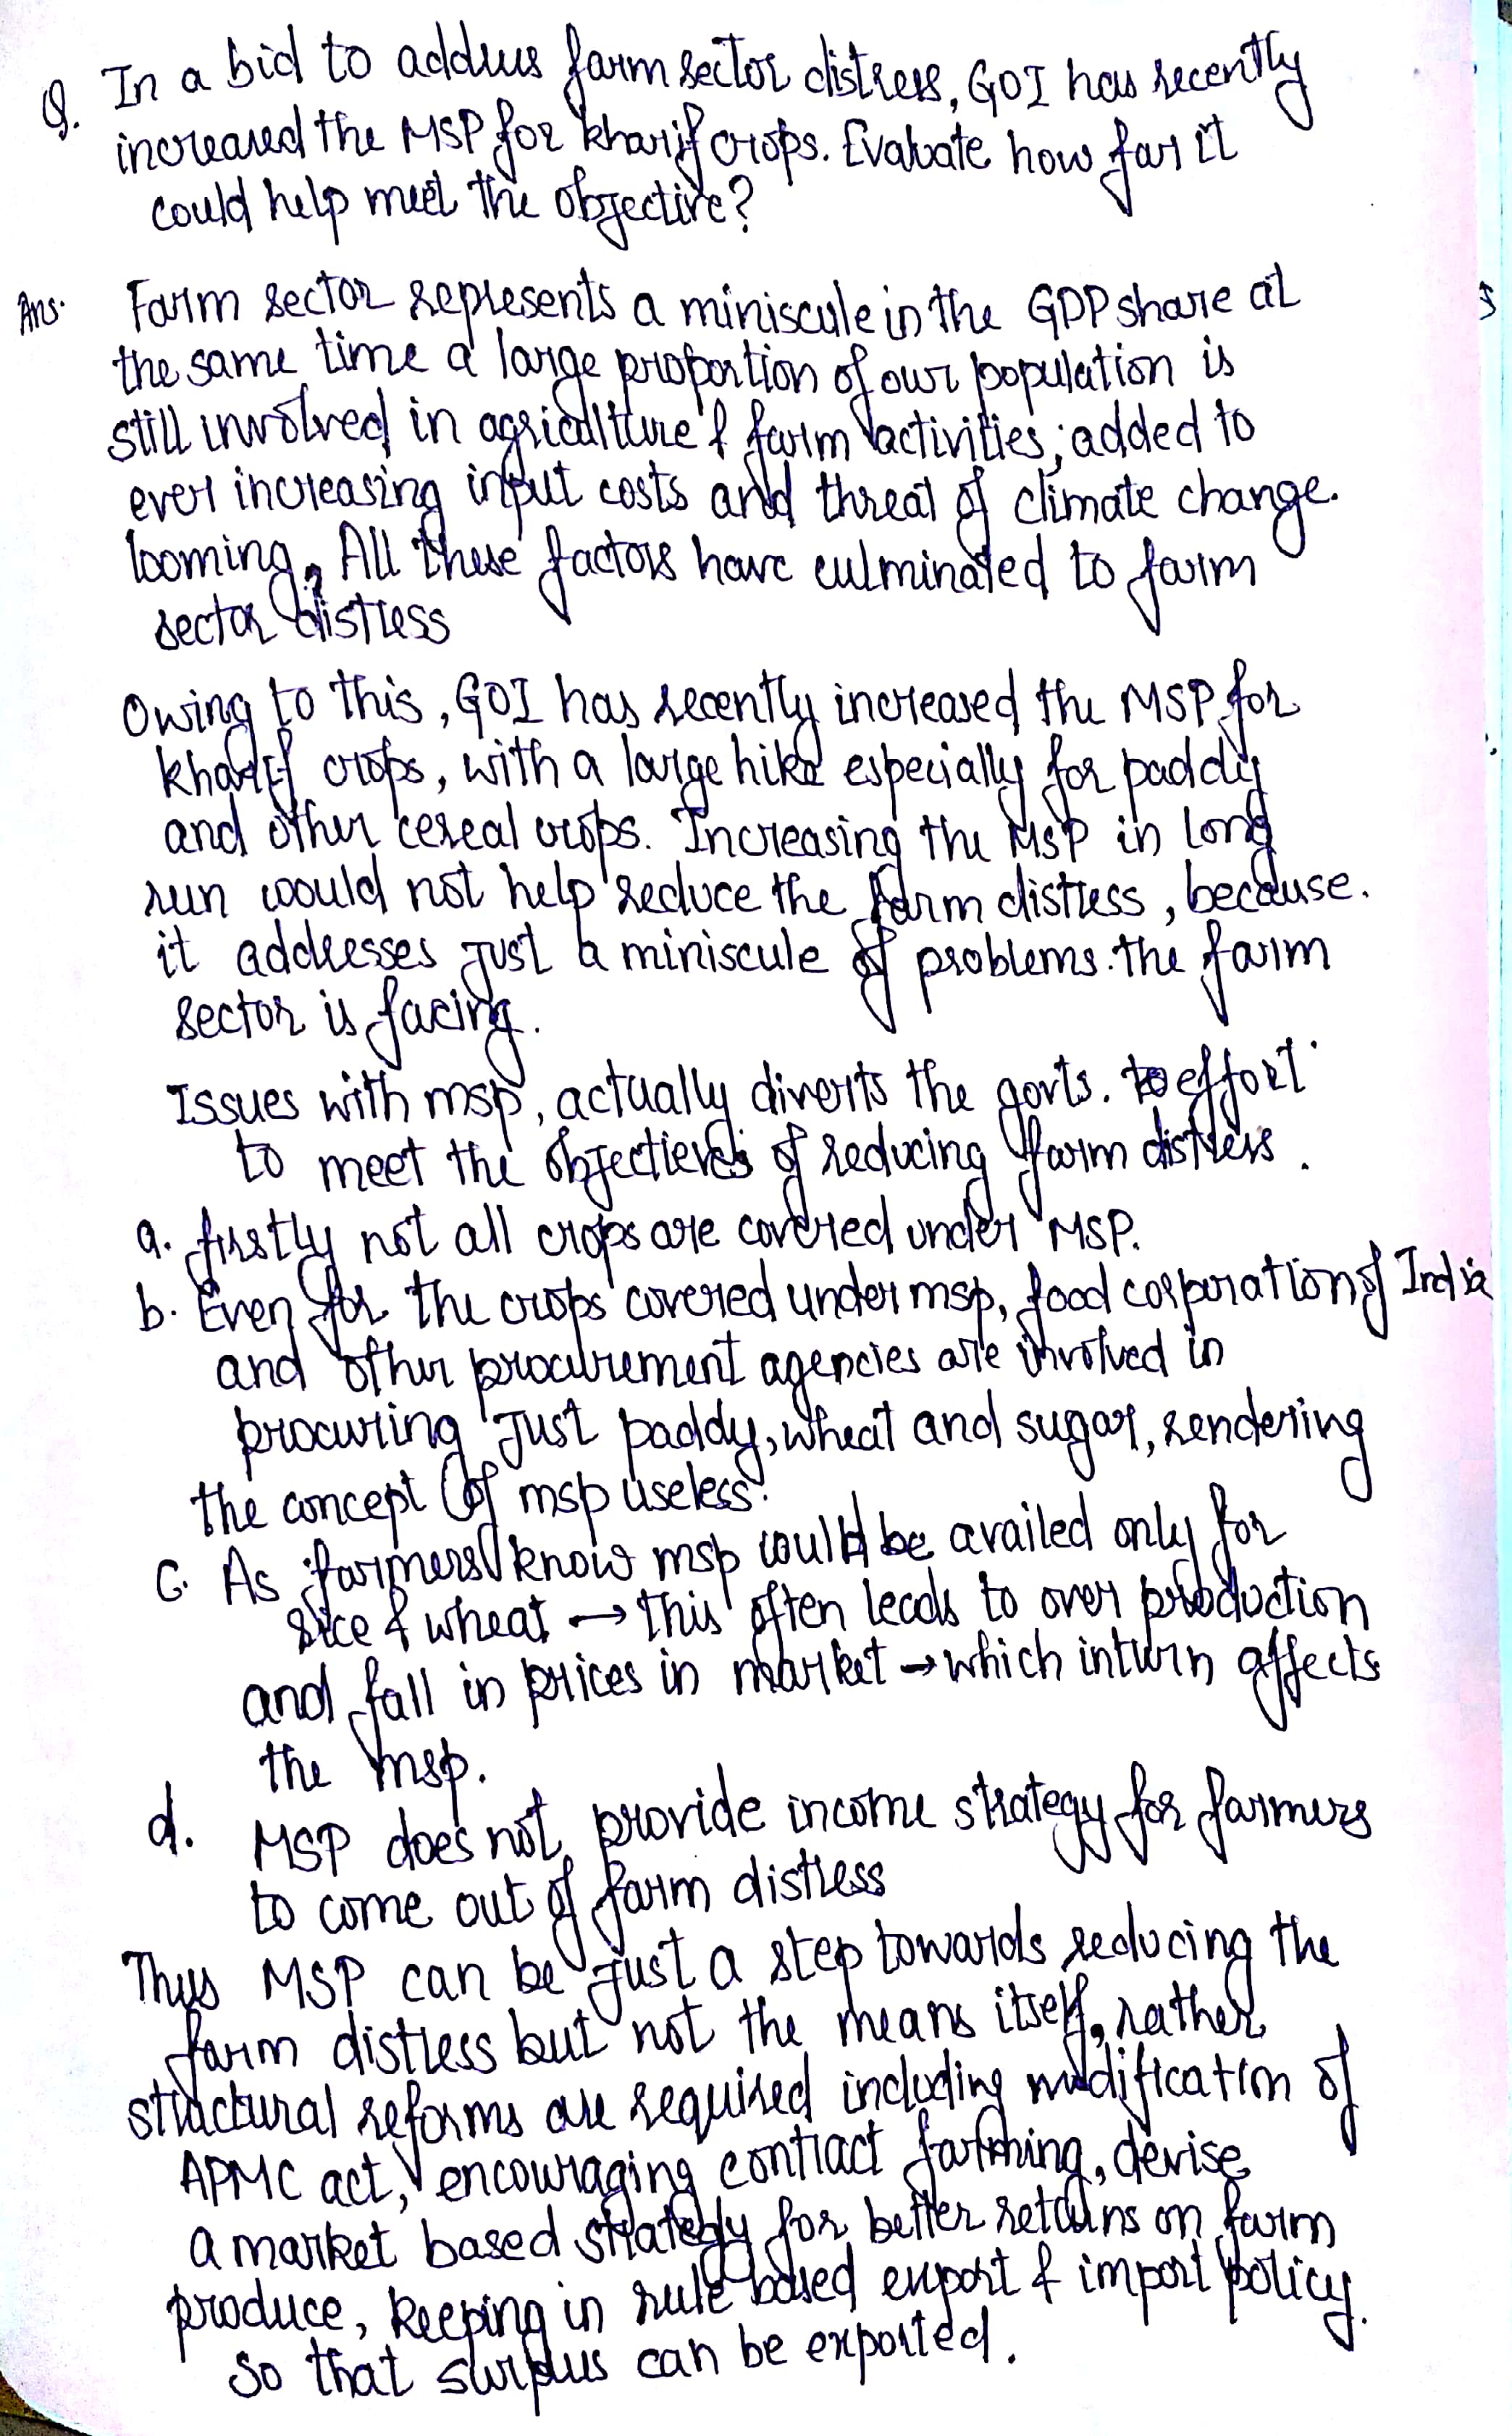 Q. In a bid to address farm sector distress, GOI has recently
increased the MSP for kharif crops. Evaluate how far it
could help meet the objective?
Ans. Farm sector represents a miniscule in the GDP share at
the same time a large proportion of our population is
still involved in agriculture & farm activities; added to
ever increasing input costs and threat of climate change.
looming, All these factors have culminated to farm
sector distress
Owing to this, GOI has recently increased the MSP for
kharif crops, with a large hike especially for paddy
and other cereal crops. Increasing the MSP in long
run would not help reduce the farm distress, because.
it addresses just a miniscule of problems. the farm
sector is facing.
Issues with msp, actually diverts the govts. effort
to meet the objectieves of reducing farm distress.
a. firstly not all crops are covered under MSP.
b. Even for the crops covered under msp, food corporation of India
and other procurement agencies are involved in
procuring just paddy, wheat and sugar, rendering
the concept of msp useless.
c. As farmers know msp could be availed only for
rice & wheat → this often leads to over production
and fall in prices in market → which inturn affects
the msp.
d. MSP does not provide income strategy for farmers
to come out of farm distress
Thus MSP can be just a step towards reducing the
farm distress but not the means itself, rather
structural reforms are required including modification of
APMC act, encouraging contract farming, devise
a market based strategy for better returns on farm
produce, keeping in rule based export & import policy.
so that surplus can be exported.